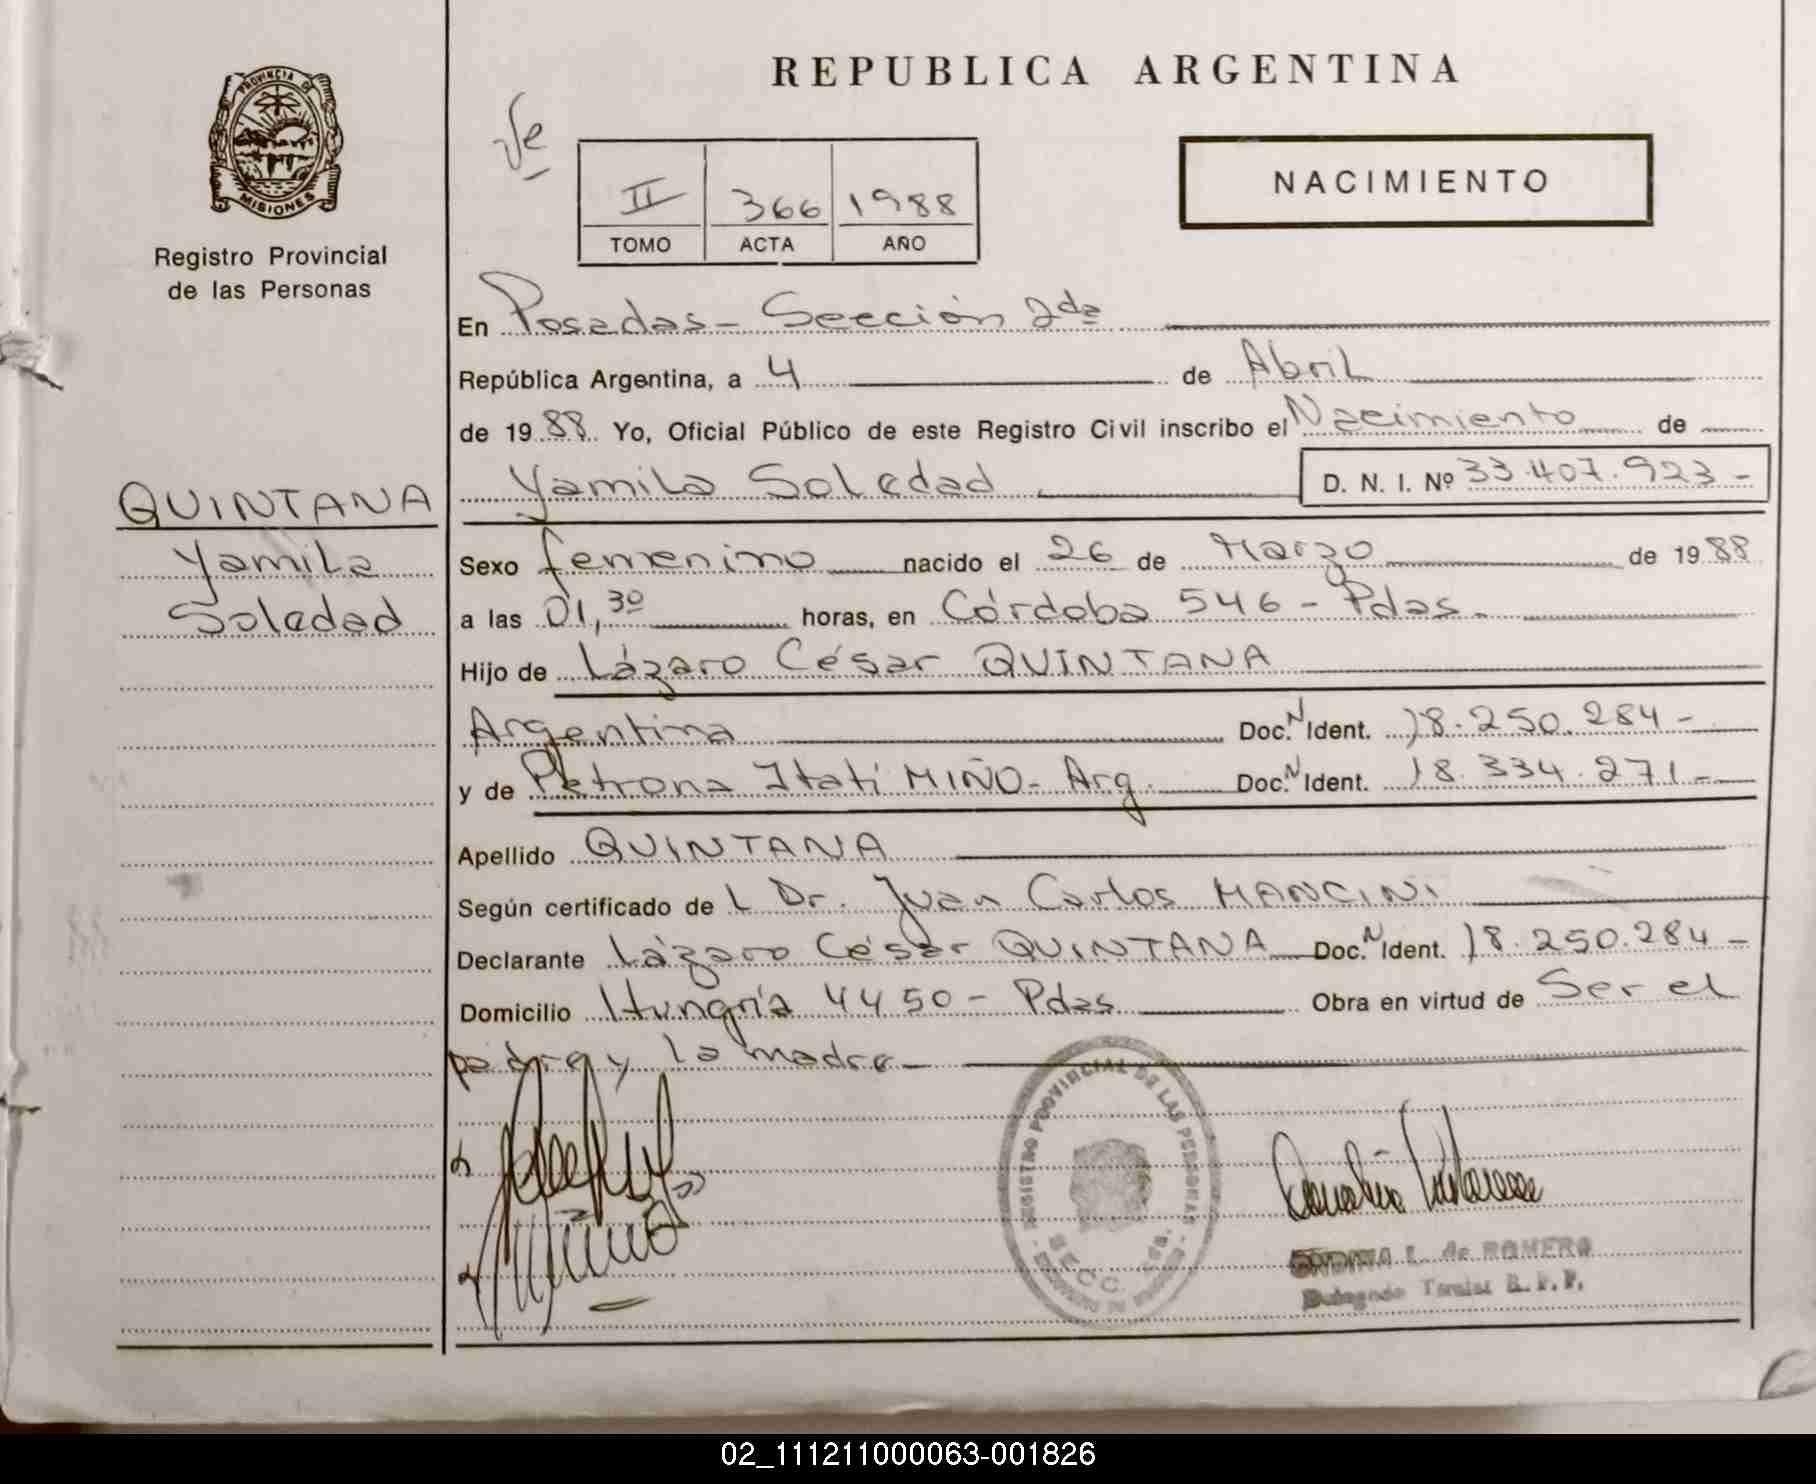 REPUBLICA ARGENTINA
PROVINCIA DE
MISIONES
Registro Provincial
de las Personas
II 366 1988
TOMO ACTA AÑO
NACIMIENTO
En Posadas - Sección 2da
República Argentina, a 4 de Abril
de 1988. Yo, Oficial Público de este Registro Civil inscribo el Nacimiento de
Yamila Soledad D. N. I. Nº 33.407.923-
QUINTANA
Yamila
Soledad
Sexo femenino nacido el 26 de Marzo de 1988
a las 01,30 horas, en Córdoba 546 - Pdas.
Hijo de Lázaro César QUINTANA
Argentina Doc. N Ident. 18.250.284-
y de Petrona Itatí MIÑO - Arg. Doc. N Ident. 18.334.271-
Apellido QUINTANA
Según certificado de L Dr. Juan Carlos MANCINI
Declarante Lázaro César QUINTANA Doc. N Ident. 18.250.284-
Domicilio Hungría 4450 - Pdas Obra en virtud de Ser el
padre y la madre
REGISTRO PROVINCIAL DE LAS PERSONAS
SECC.
L. de ROMERO
02_111211000063-001826